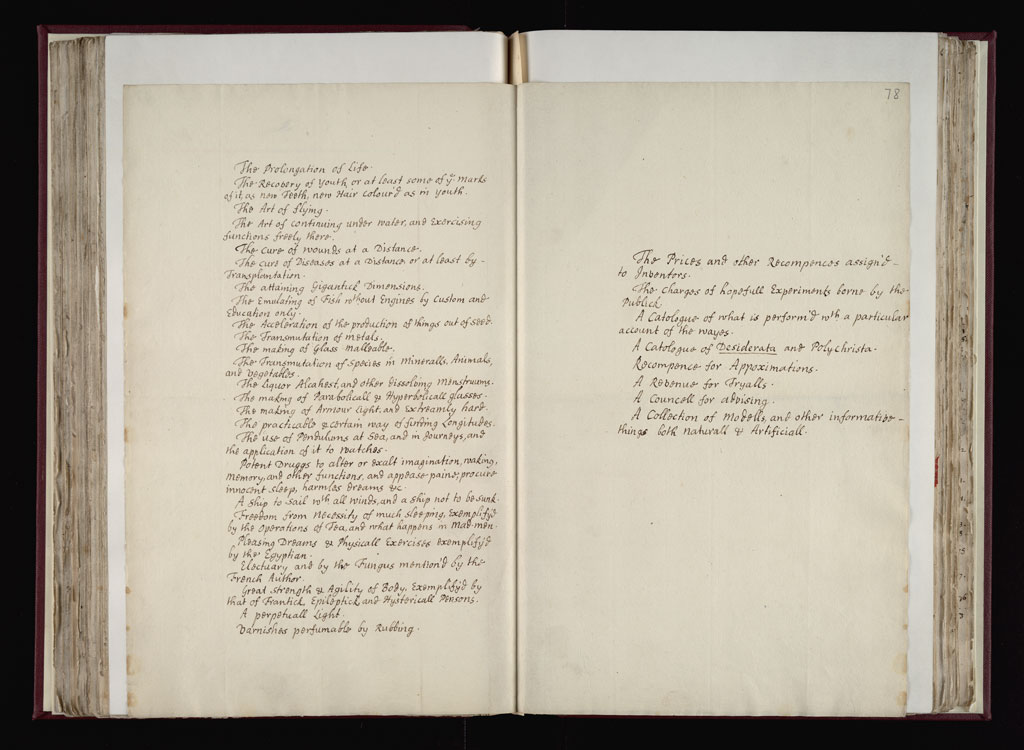 The Prolongation of Life.
The Recovery of Youth, or at least some of ye Marks
of it, as new Teeth, new Hair colour'd as in youth.
The Art of flying.
The Art of Continuing under water, and Exercising
functions freely there.
The Cure of Wounds at a Distance.
The cure of Diseases at a Distance or at least by -
Transplantation.
The attaining Gigantick Dimensions.
The Emulating of Fish without Engines by Custom and
Education only.
The Acceleration of the production of things out of Seed.
The Transmutation of metals.
The making of Glass Malleable.
The Transmutation of Species in Mineralls, Animals,
and Vegetables.
The Liquor Alcahest, and other dissolving Menstruums.
The making of Parabolicall & Hyperbolicall glasses.
The making of Armour light, and Extreamly hard.
The practicable & certain way of finding Longitudes.
The use of Pendulums at Sea, and in Journeys, and
the application of it to watches.
Potent Druggs to alter or exalt imagination, waking,
Memory, and other functions, and appease paine, procure
innocent sleep, harmles dreams &c.
A ship to sail wth all winds, and a ship not to be sunk.
Freedom from Necessity of much Sleeping, Exemplify'd
by the Operations of Tea, and what happens in Mad-men.
Pleasing Dreams & Physicall Exercises exemplify'd
by the Egyptian.
Electuary and by the Fungus mention'd by the
French Author.
Great Strength & Agility of Body, Exemplify'd by
that of Frantick, Epileptick, and Hystericall Persons.
A perpetuall Light.
Varnishes perfumable by Rubbing.
78
The Prices and other Recompences assign'd -
to Inventors.
The Charges of hopefull Experiments borne by the
Publick.
A Catologue of what is perform'd wth a particular
account of the wayes.
A Catologue of Desiderata and Polychrista.
Recompence for Appoximations.
A Revenue for Tryalls.
A Councell for advising.
A Collection of Modells, and other informative -
things both Naturall & Artificiall.